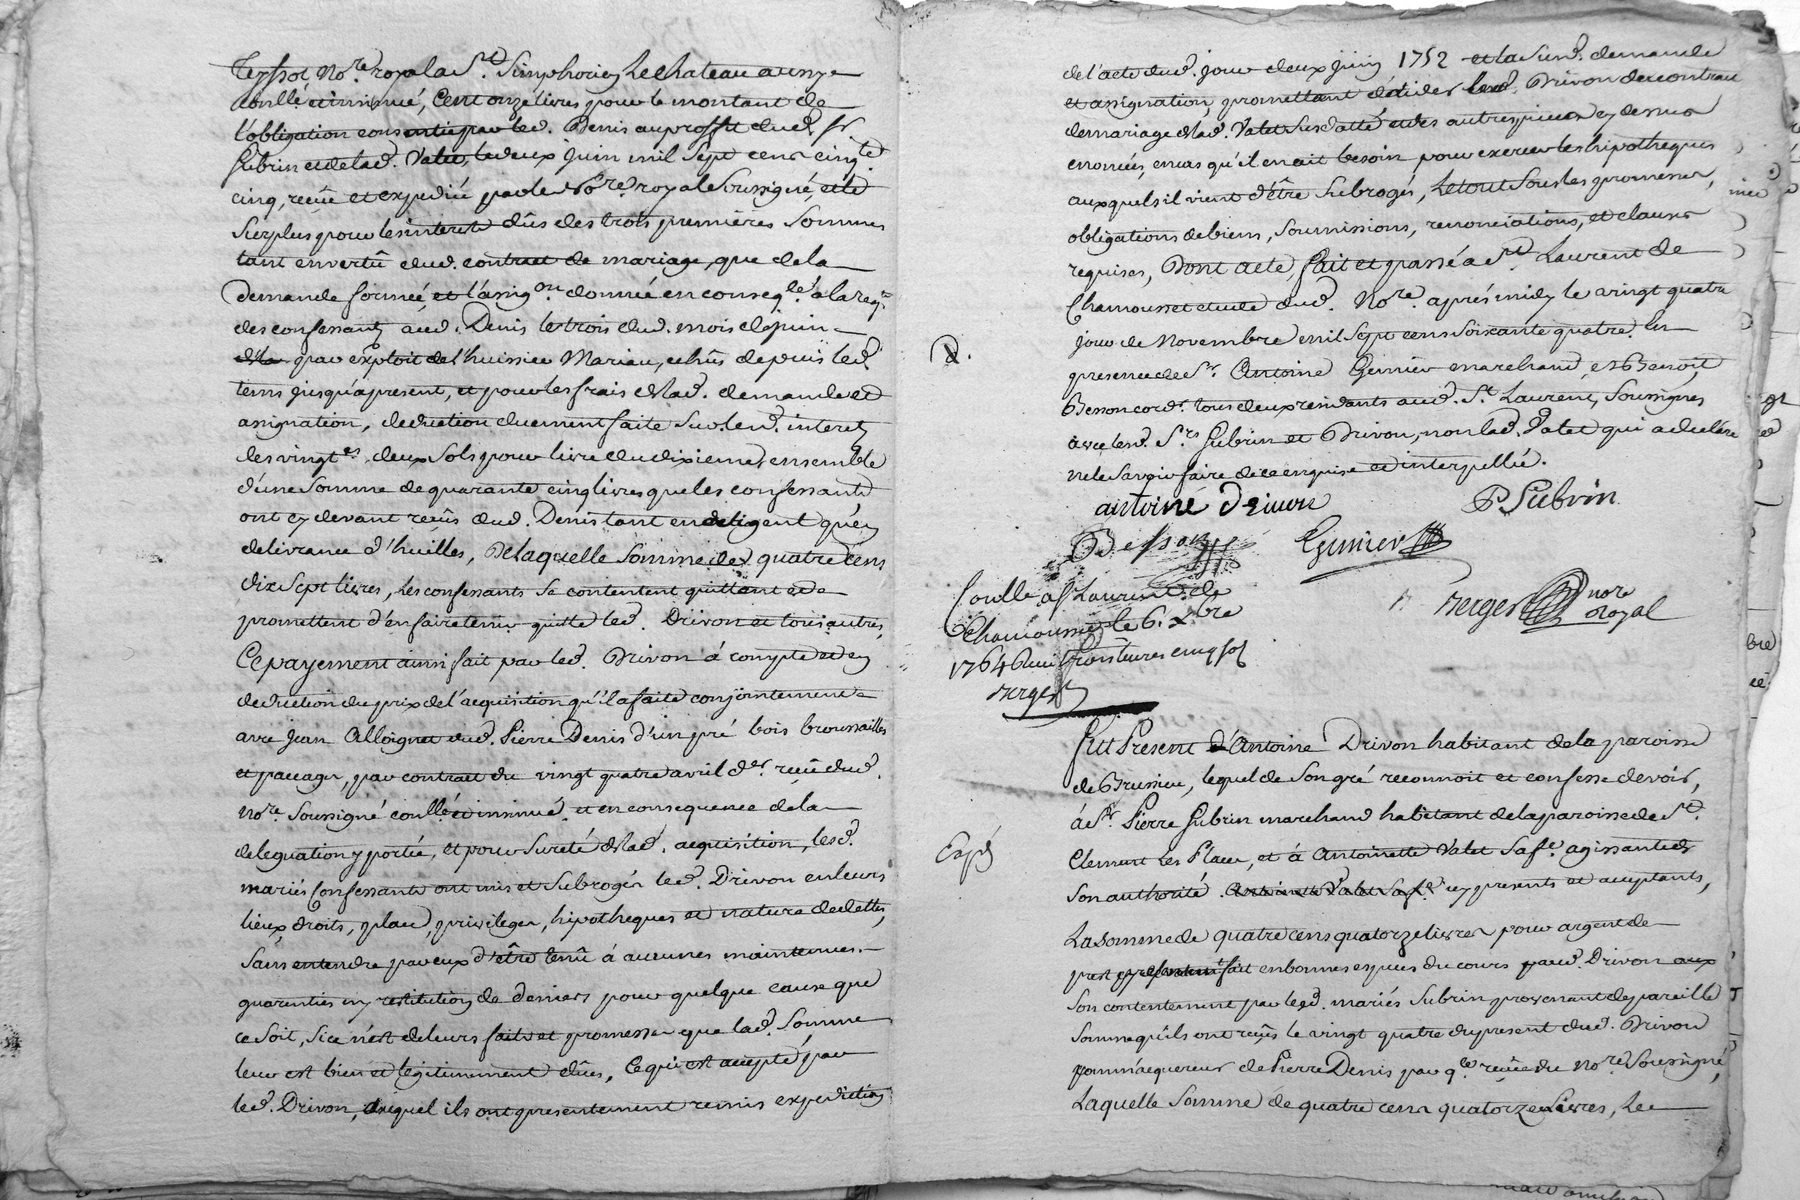 Teyssot No.re royal a St. Simphorien Le chateau aussy
coullé et insinué, Cent onze livres pour le montant de
l'obligation consentie par led. Denis au proffit dud. Sr.
Subrin et de lad. Valet, le deux juin mil sept cens cinqte.
cinq, reçüe et expediée par le No.re royal Soussigné, et le
Surplus pour les interets dûs des trois premières Sommes
tant en vertû dud. contract de mariage, que de la
Demande formée, et l'assig.on donnée en conseq.ce a la req.te
des confessants aud. Denis le trois dud. mois de juin
par Exploit de l'huissier Mariau, echûs depuis led.
tems jusqu'apresent, et pour les frais de lad. demande et
assignation, deduction duement faite Sur lesd. interets
des vingt.es deux Sols pour livre du dixieme, ensemble
d'une Somme de quarante cinq livres que les confessants
ont cy devant reçûs dud. Denis tant en argent qu'en
delivrance d'huilles, De laquelle Somme de quatre cens
dix Sept livres, les confessants Se contentent quittent et
promettent d'en faire tenir quitte led. Drivon et tous autres,
Ce payement ainsi fait par led. Drivon à compte et en
deduction du prix de l'acquisition qu'il a faite conjointement
avec Jean Alloignet dud. Pierre Denis d'un pré bois broussailles
et pacage, par contrat du vingt quatre avril d.er reçû dud.
No.re Soussigné coullé et insinué, et en consequence de la
deleguation y portée, et pour Sureté de lad. acquisition, lesd.
mariés Confessants ont mis et Subrogés led. Drivon en leurs
lieux, droits, place, privileges, hipotheques et nature de dettes,
Sans entendre par eux d'être tenû à aucunes maintenues
guarenties ny restitution de deniers pour quelque cause que
ce Soit, Si ce n'est de leurs faits et promesses que lad. Somme
leur est bien et legitimement dûe, Ce qui est accepté par
led. Drivon, auquel ils ont presentement remis expedition
de l'acte dud. jour deux juin 1752 et la Susd. demande
et assignation, promettant d'aider led. Drivon du contrat
de mariage de lad. Valet Susdatté et des autres pieces cy dessus
enoncées, en cas qu'il en ait besoin pour exercer les hipotheques
auxquels il vient d'être Subrogés, Le tout Sous les promesses,
obligations de biens, Soumissions, renonciations, et clauses
requises, Dont acte, fait et passé a St. Laurent de
Chamousset etude dud. No.re après midy le vingt quatre
jour de Novembre mil Sept cens Soixante quatre En
presence de Sr. Antoine Gunier marchand, et Benoit
Besson cord.r tous deux residants aud. St. Laurent, Soussignés
avec lesd. Srs Subrin et Drivon, non lad. Valet qui a declaré
ne le Savoir faire de ce enquise et interpellée.
antoine drivon P Subrin
Besson Gunier
Berger no.re royal
Coullé a St Laurent de
Chamousset le 6. Xbre
1764 Reçu trois livres cinq sols
Berger
Expé
Fut Present Antoine Drivon habitant de la paroisse
de Brussieu, lequel de Son gré reconnoit et confesse devoir,
à Sr. Pierre Subrin marchand habitant de la paroisse de St.
Clement Les Places, et à Antoinette Valet Sa fe. agissante de
Son authorité. Antoinette Valet Sa fe. cy presents et acceptants,
La Somme de quatre cens quatorze livres pour argent de
prest presentement fait en bonnes especes du cours aud. Drivon aux
Son contentement par lesd. mariés Subrin provenant de pareille
Somme qu'ils ont reçûs le vingt quatre du present dud. Drivon
comm'acquereur de Pierre Denis par q.ce reçûe du No.re Soussigné,
Laquelle Somme de quatre cens quatorze Livres, Le